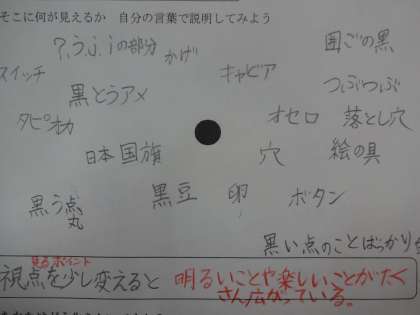 そこに何が見えるか 自分の言葉で説明してみよう
?、う、j、iの部分 かげ 囲ごの黒
スイッチ キャビア つぶつぶ
黒とうアメ
タピオカ オセロ 落とし穴
日本国旗 穴 絵の具
黒う点 黒豆 卵 ボタン
丸
黒い点のことばっかり
見るポイント
視点を少し変えると 明るいことや楽しいことがたく
さん広がっている。